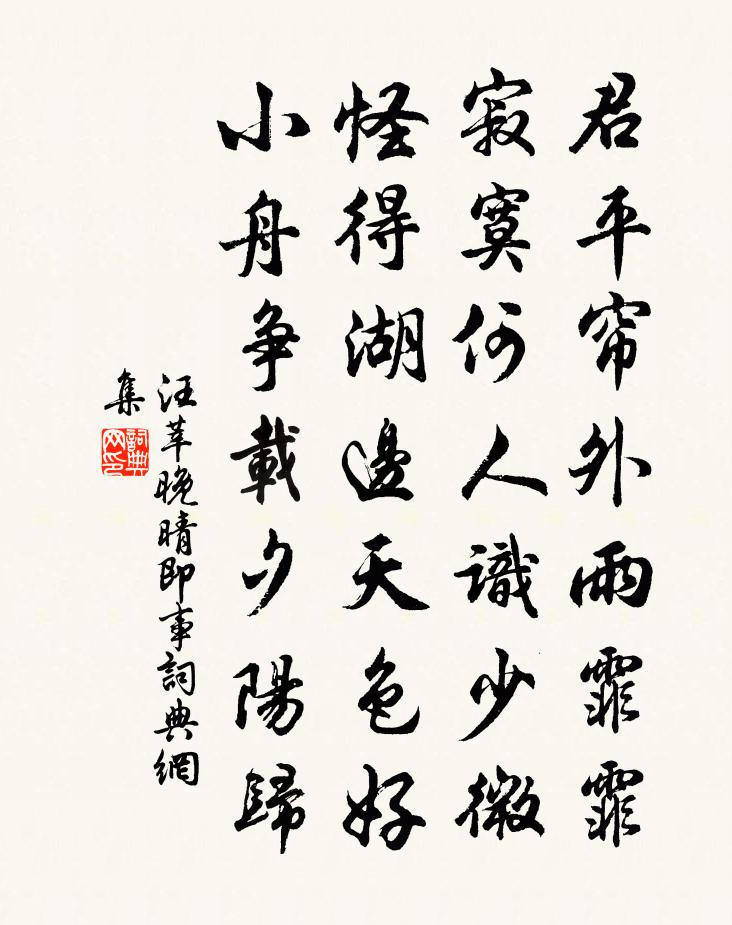 君平帘外雨霏霏
寂寞何人識少微
怪得湖邊天色好
小舟争載夕陽歸
汪莘晚晴即事詞典網
集
詞典
网印